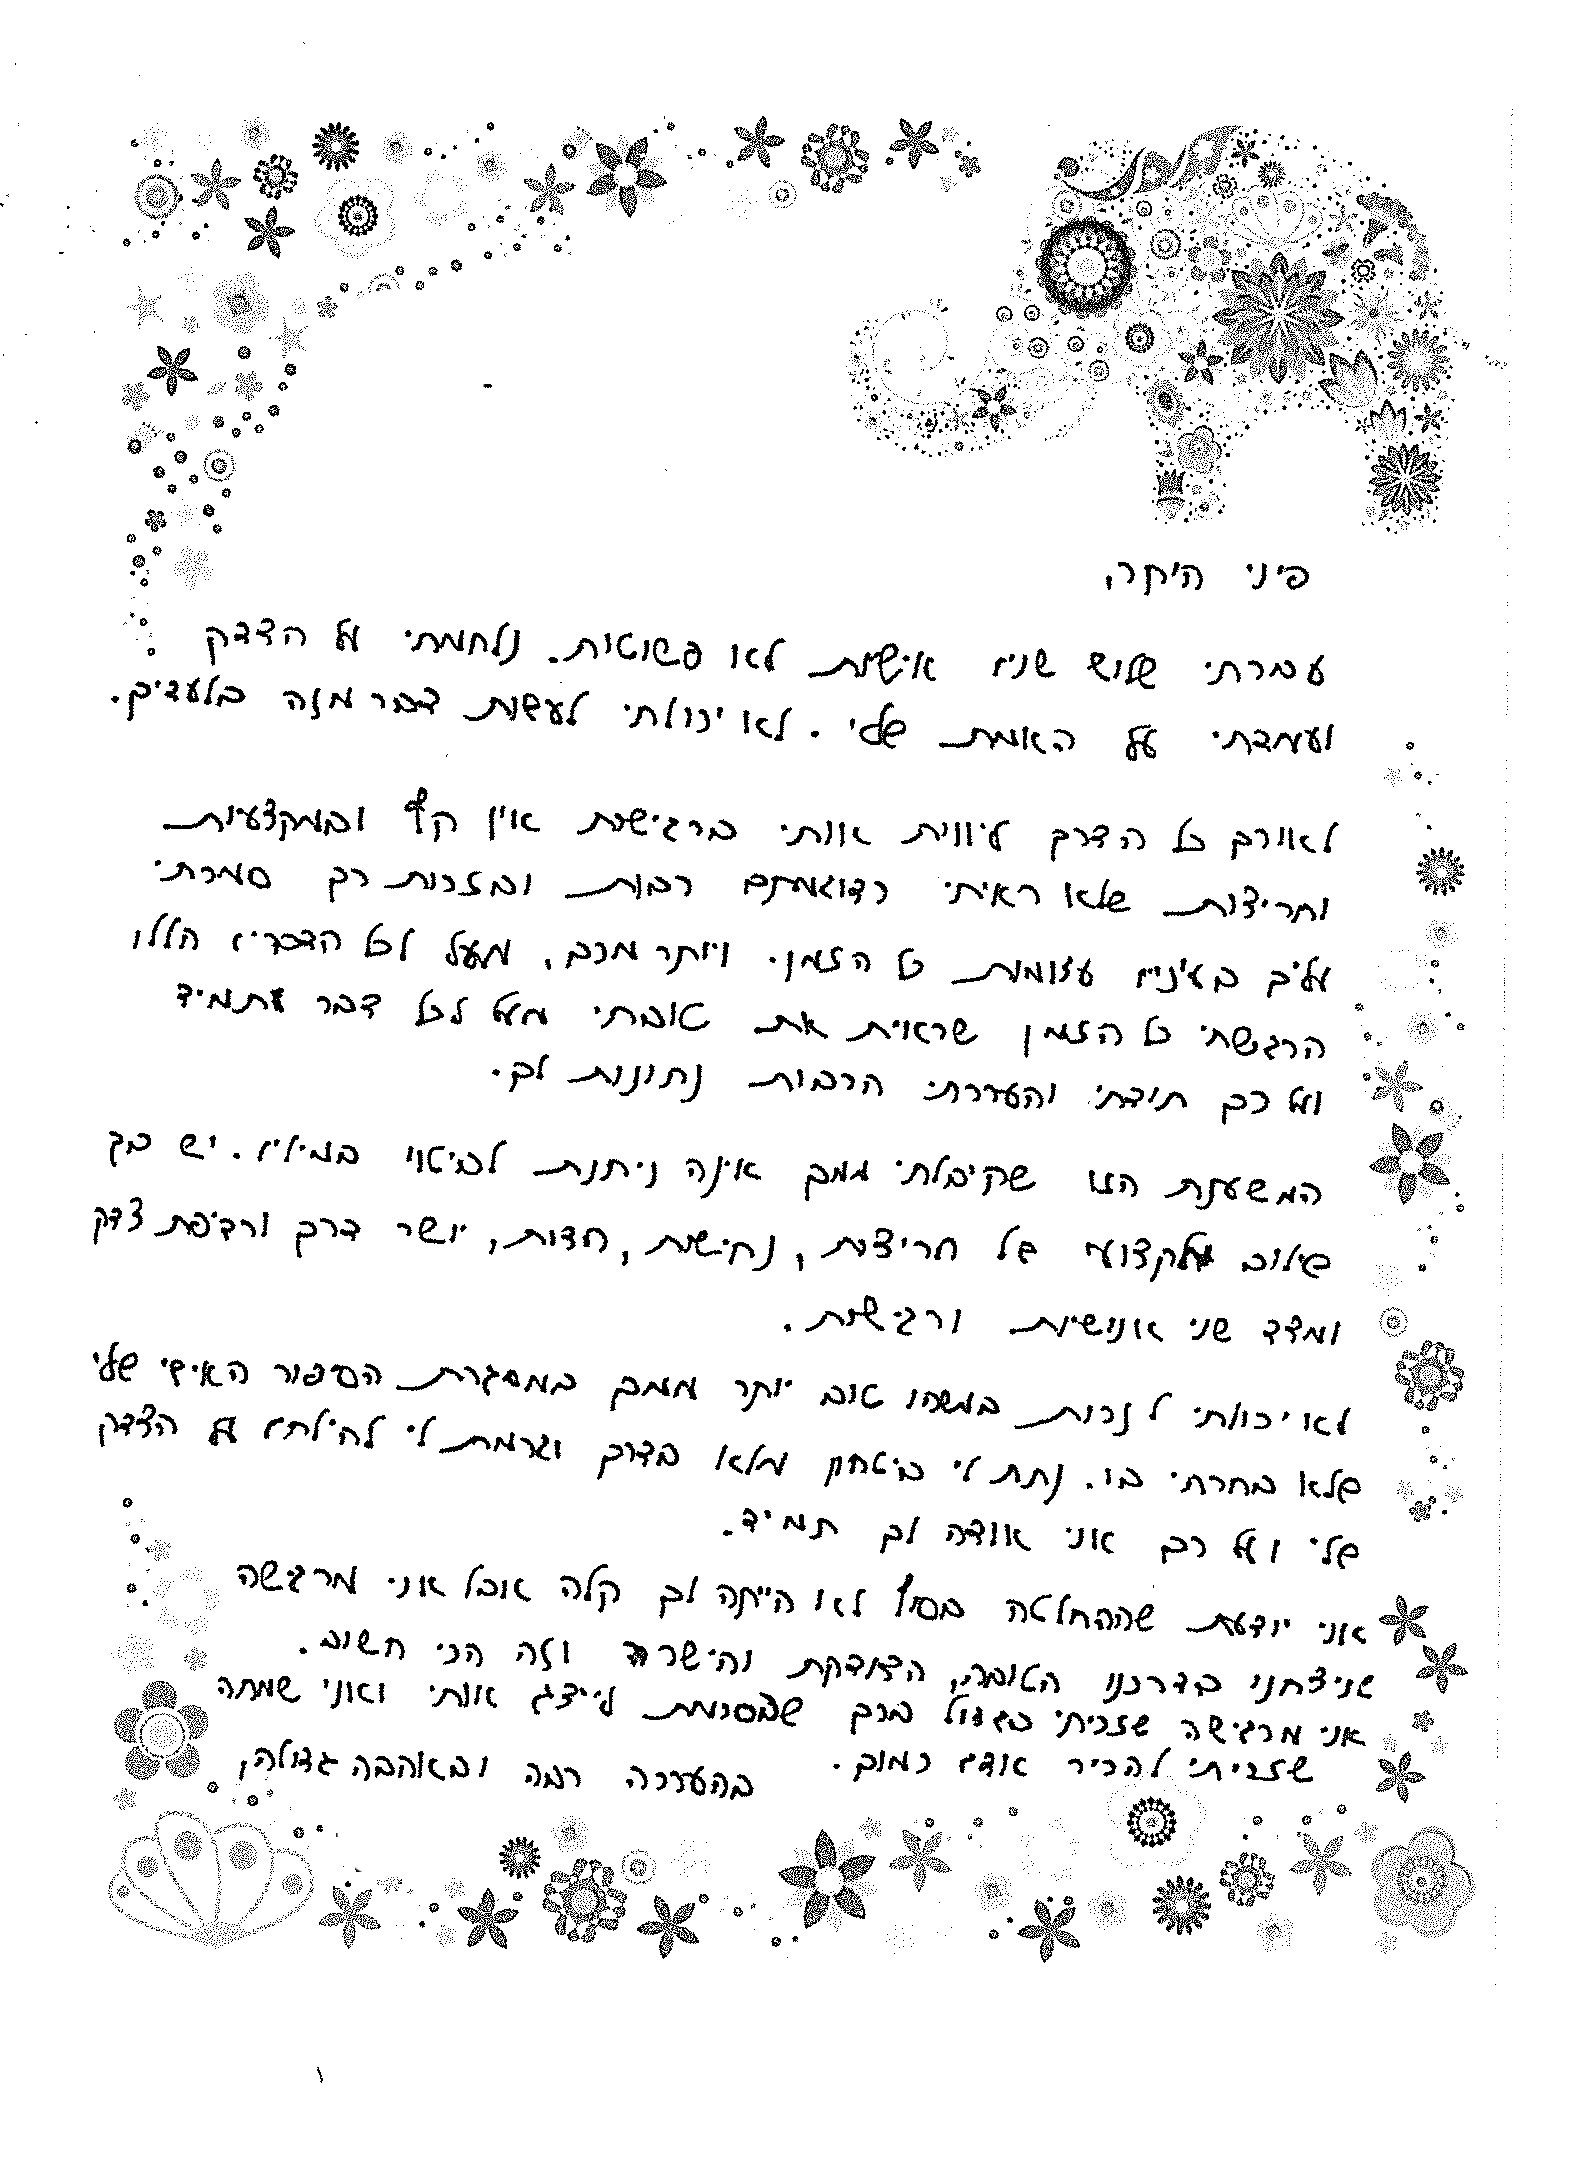 פיני היקר,
עברתי שלוש שנים אישיות לא פשוטות. נלחמתי על הצדק
ועמדתי על האמת שלי. לא יכולתי לעשות דבר מזה בלעדיך.
לאורך כל הדרך ליווית אותי ברגישות אין קץ ובמקצעיות
וחריצות שלא ראיתי כדוגמתם רבות ובזכות כך סמכתי
עליך בעינים עצומות כל הזמן. ויותר מכך, מעל לכל הדברים הללו
הרגשתי כל הזמן שראית את טובתי מעל לכל דבר ותמיד
ועל כך תודתי והערכתי הרבות נתונות לך.
המשענת הזו שקיבלתי ממך אינה ניתנת לביטוי במילים. יש בך
שילוב מקצועי של חריצות, נחישות, חדות, יושר דרך ורדיפת צדק
ומצד שני אנושיות ורגישות.
לא יכולתי לזכות במשהו טוב יותר ממך במסגרת הסיפור האישי שלי
שלא בחרתי בו. נתת לי ביטחון מלא בדרך וגרמת לי להילחם על הצדק
שלי ועל כך אני אודה לך תמיד.
אני יודעת שההחלטה בסוף לא הייתה לך קלה אבל אני מרגישה
שניצחנו בדרכנו הטובה, הצודקת והישרה וזה הכי חשוב.
אני מרגישה שזכיתי בגדול בכך שהסכמת לייצג אותי ואני שמחה
שזכיתי להכיר אדם כמוך. בהערכה רבה ובאהבה גדולה,